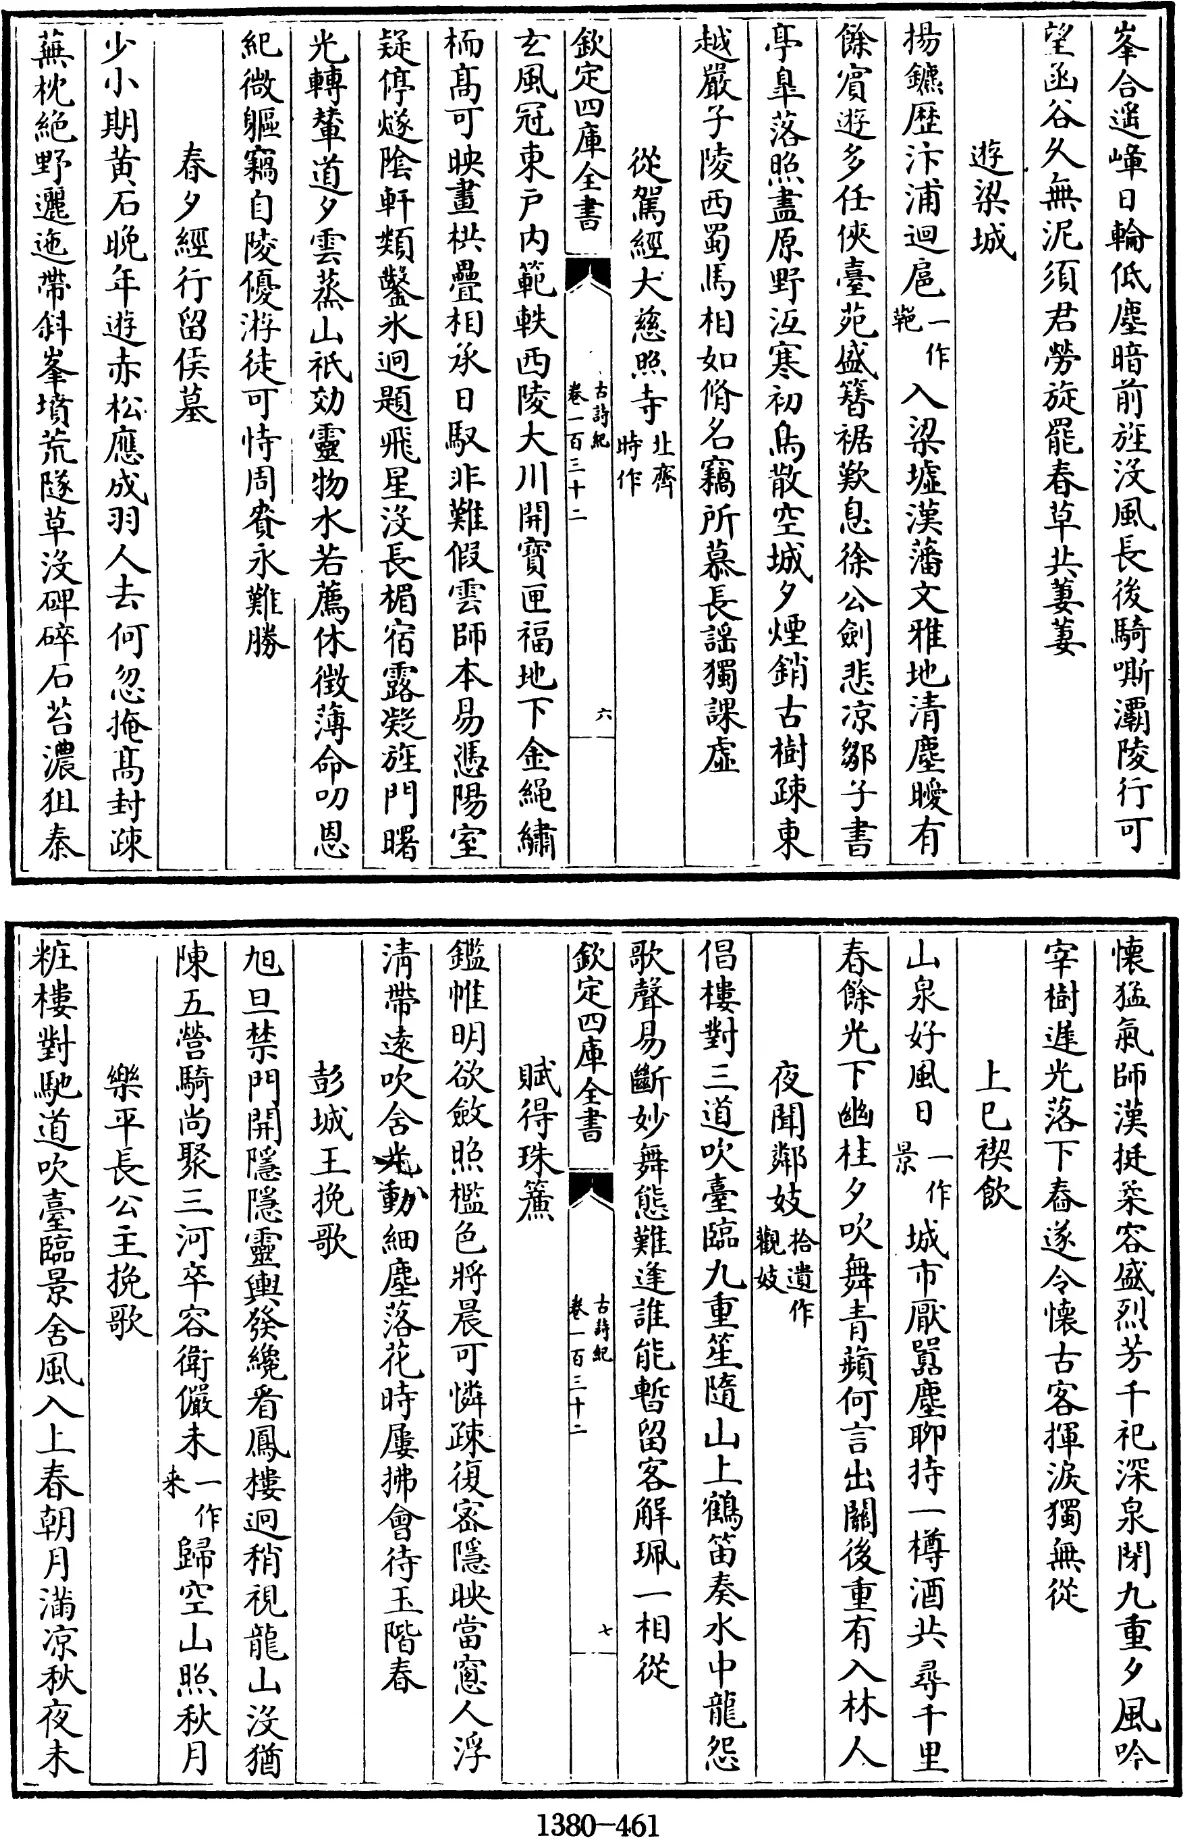 峯合遥嶂日輪低塵暗前旌沒風長後騎嘶灞陵行可
望函谷久無泥須君勞旋罷春草共萋萋
遊梁城
揚鑣歴汴浦迴扈一作䩗入梁墟漢藩文雅地清塵曖有
餘賔遊多任俠臺苑盛簮裾歎息徐公劍悲凉鄒子書
亭臯落照盡原野沍寒初鳥散空城夕煙銷古樹疎東
越嚴子陵西蜀馬相如脩名竊所慕長謡獨課虚
從駕經大慈照寺北齊時作
欽定四庫全書 古詩紀 卷一百三十二 六
玄風冠東戶内範軼西陵大川開寶匣福地下金繩繡
栭髙可映畫栱疊相承日馭非難假雲師本易憑陽室
疑停燧陰軒類鑿氷迥題飛星沒長楣宿露凝旌門曙
光轉輦道夕雲蒸山祇効靈物水若薦休徴薄命叨恩
紀微軀竊自陵優游徒可恃周賚永難勝
春夕經行留侯墓
少小期黄石晚年遊赤松應成羽人去何忽掩髙封疎
蕪枕絶野邐迤帶斜峯墳荒隧草沒碑碎石苔濃狙秦
懷猛氣師漢挺柔容盛烈芳千祀深泉閉九重夕風吟
宰樹遲光落下舂遂令懷古客揮淚獨無從
上巳禊飲
山泉好風日一作景城市厭嚣塵聊持一樽酒共尋千里
春餘光下幽桂夕吹舞青蘋何言出關後重有入林人
夜聞鄰妓拾遺作觀妓
倡樓對三道吹臺臨九重笙隨山上鶴笛奏水中龍怨
歌聲易斷妙舞態難逢誰能暫留客解珮一相從
欽定四庫全書 古詩紀 卷一百三十二 七
賦得珠簾
鑑帷明欲斂照檻色將晨可憐疎復密隱映當窻人浮
清帶逺吹含光動細塵落花時屢拂會待玉階春
彭城王挽歌
旭旦禁門開隱隱靈輿發纔看鳳樓迥稍視龍山沒猶
陳五營騎尚聚三河卒容衛儼未一作来歸空山照秋月
樂平長公主挽歌
粧樓對馳道吹臺臨景舍風入上春朝月滿凉秋夜未
1380-461